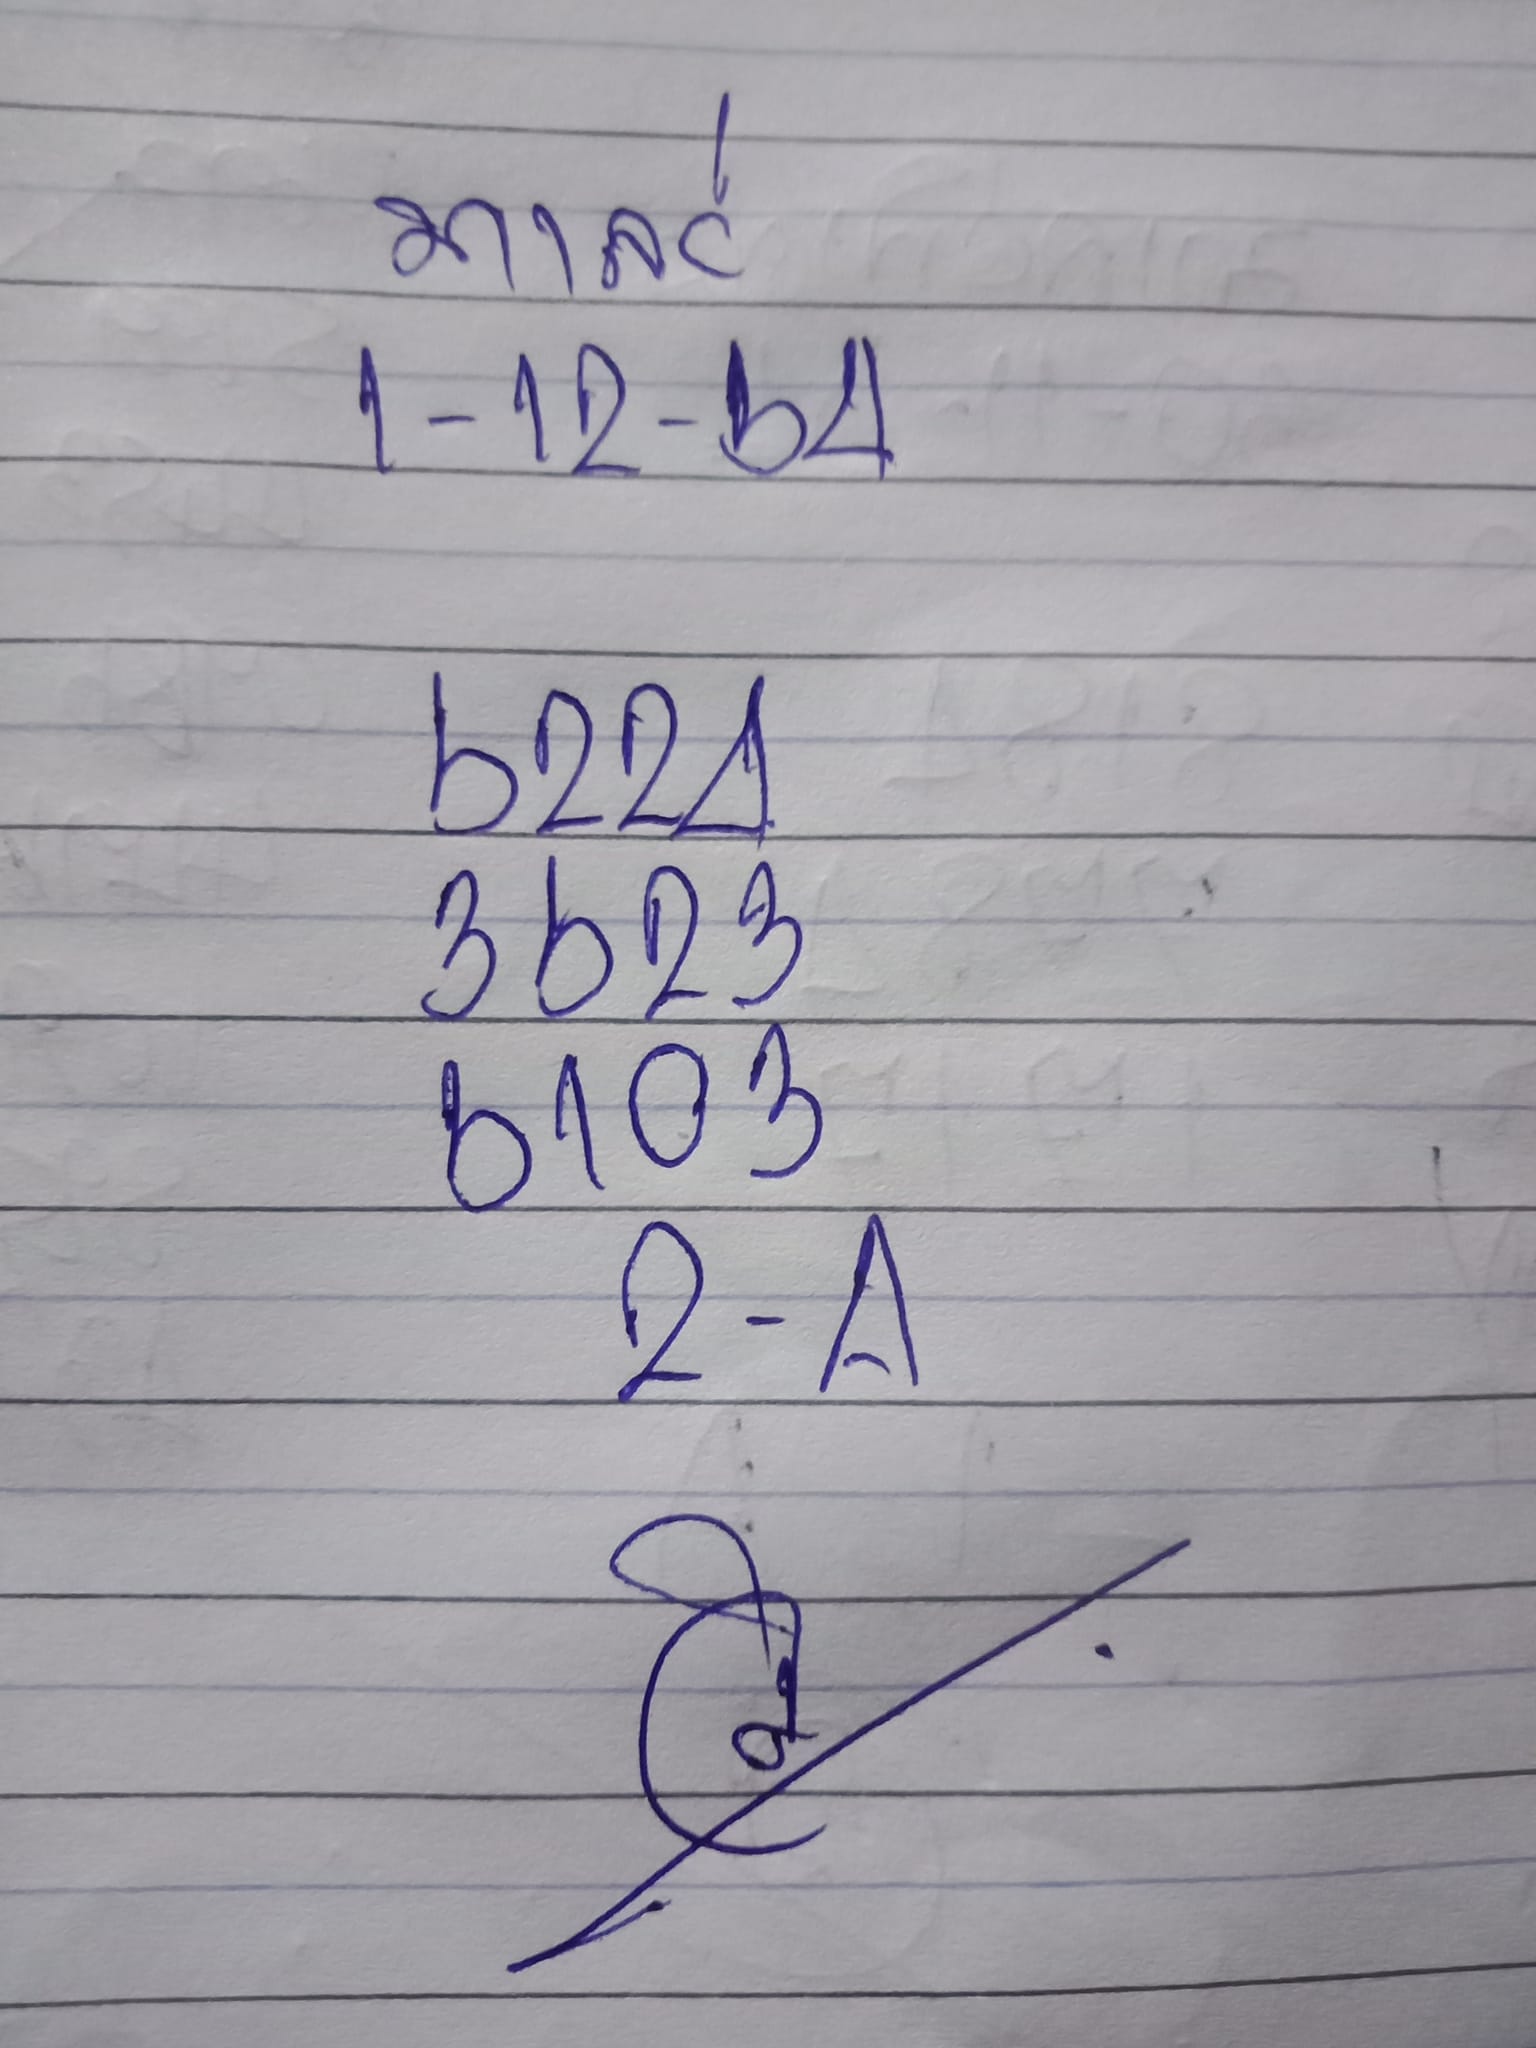 มาเลย์
1-12-64
6224
3623
6103
2-A